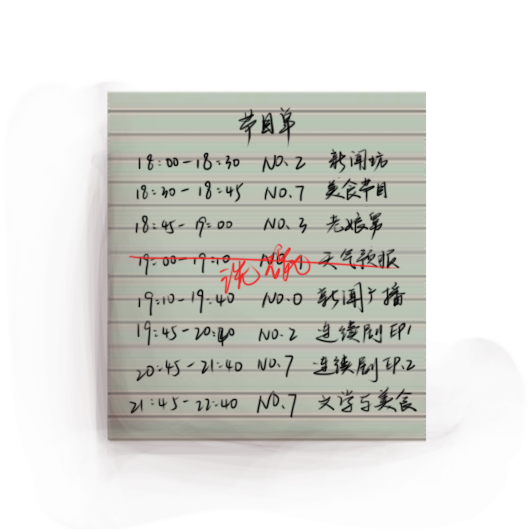 节目单
18:00-18:30 NO.2 新闻坊
18:30-18:45 NO.7 美食节目
18:45-19:00 NO.3 老娘舅
19:00-19:10 天气预报
洗碗
19:10-19:40 NO.0 新闻广播
19:45-20:40 NO.2 连续剧EP.1
20:45-21:40 NO.7 连续剧EP.2
21:45-22:40 NO.7 文学与美食